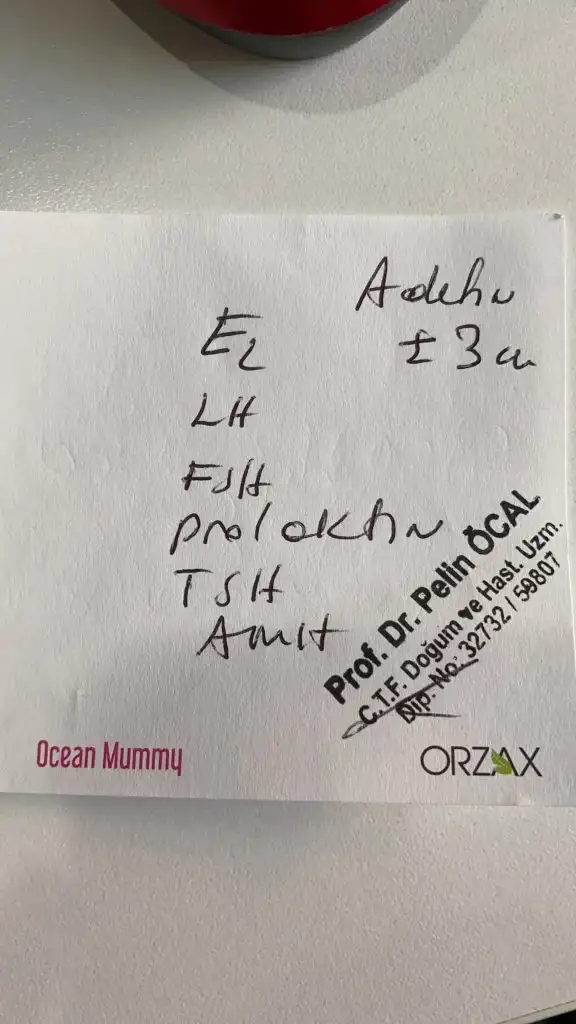 Adetin
± 3 cü
E2
LH
FSH
prolaktin
TSH
AMH
Prof. Dr. Pelin ÖCAL
C.T.F. Doğum ve Hast. Uzm.
Dip. No: 32732 / 59807
Ocean Mummy
ORZAX